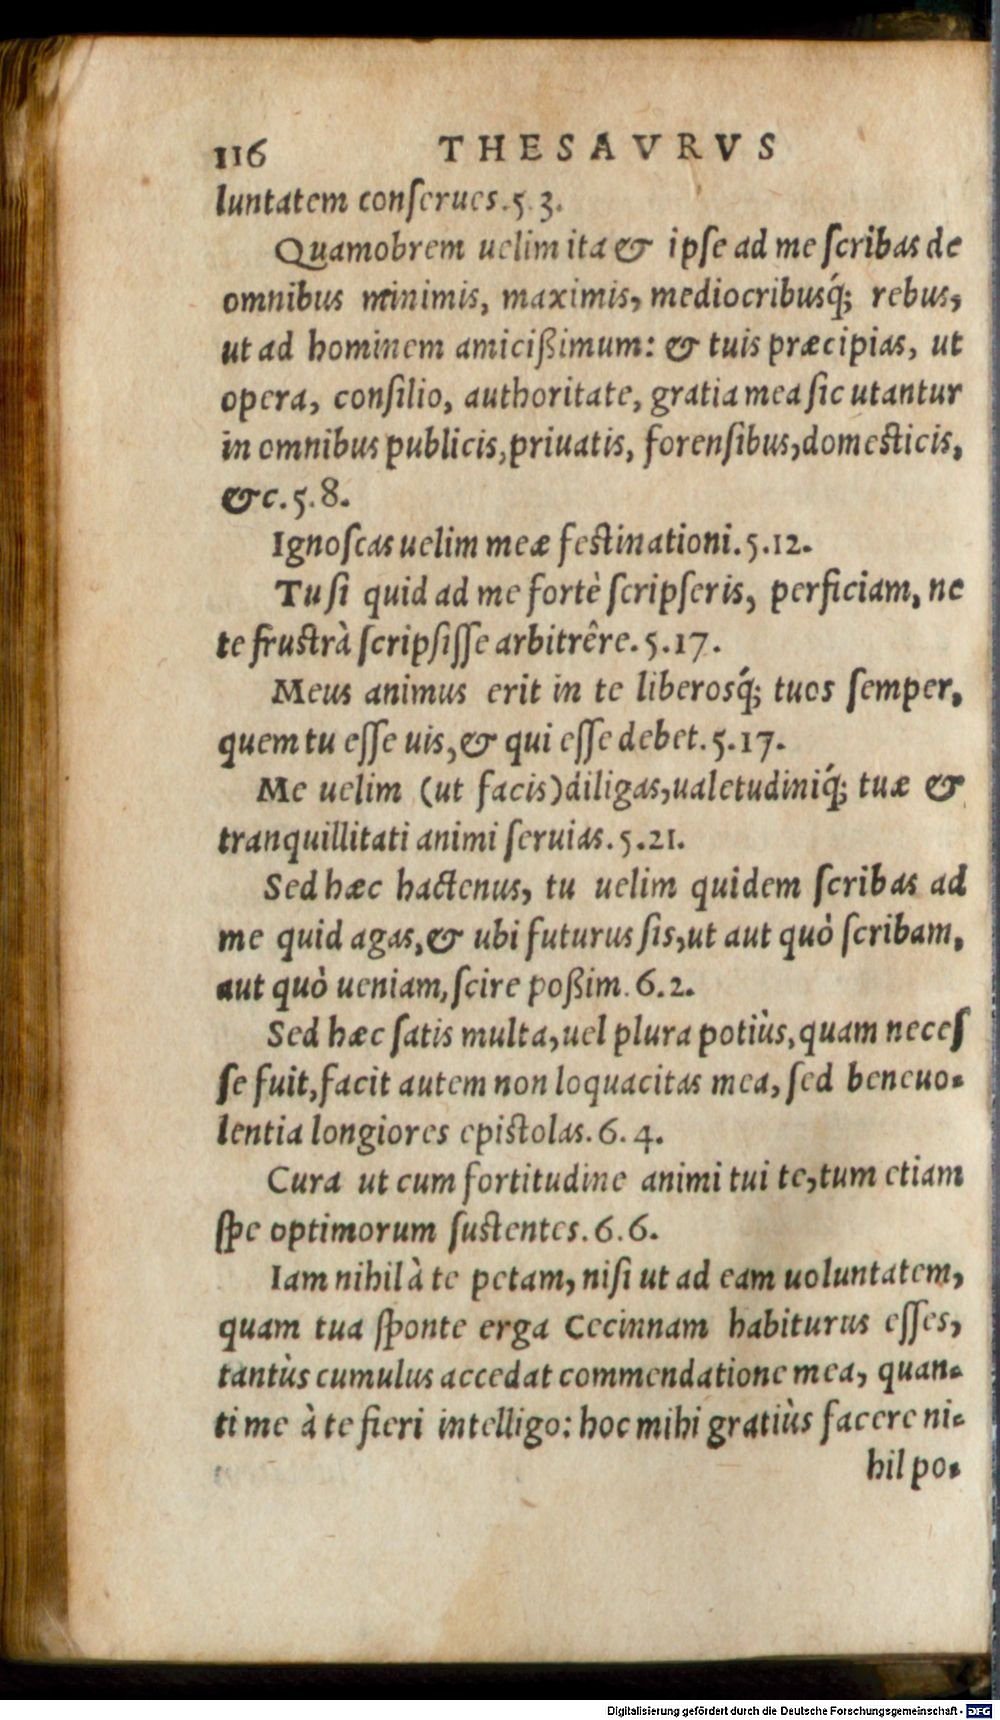 116 THESAVRVS
luntatem conſerues.5.3.
Quamobrem uelim ita & ipſe ad me ſcribas de
omnibus minimis, maximis, mediocribusq́; rebus,
ut ad hominem amicißimum: & tuis præcipias, ut
opera, conſilio, authoritate, gratia mea ſic utantur
in omnibus publicis, priuatis, forenſibus, domesticis,
&c.5.8.
Ignoſcas uelim meæ feſtinationi.5.12.
Tu ſi quid ad me fortè ſcripſeris, perficiam, ne
te fruſtrà ſcripſiſſe arbitrêre.5.17.
Meus animus erit in te liberosq́; tuos ſemper,
quem tu eſſe uis, & qui eſſe debet.5.17.
Me uelim (ut facis) diligas, ualetudiniq́; tuæ &
tranquillitati animi ſeruias.5.21.
Sed hæc hactenus, tu uelim quidem ſcribas ad
me quid agas, & ubi futurus ſis, ut aut quò ſcribam,
aut quò ueniam, ſcire poßim.6.2.
Sed hæc ſatis multa, uel plura potiùs, quam neceſ
ſe fuit, facit autem non loquacitas mea, ſed beneuo-
lentia longiores epiſtolas.6.4.
Cura ut cum fortitudine animi tui te, tum etiam
ſpe optimorum ſuſtentes.6.6.
Iam nihil à te petam, niſi ut ad eam uoluntatem,
quam tua ſponte erga Cecinnam habiturus eſſes,
tantùs cumulus accedat commendatione mea, quan-
ti me à te fieri intelligo: hoc mihi gratiùs facere ni-
hil po-
Digitalisierung gefördert durch die Deutsche Forschungsgemeinschaft - DFG